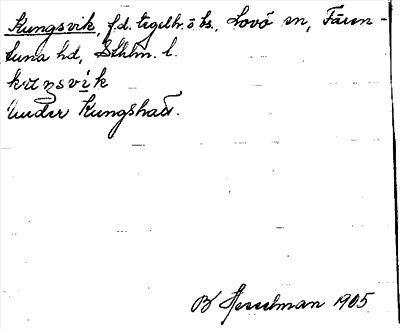 Kungsvik, f.d. tegelbr. o ls., Lovö sn, Fären-
tuna hd, Sthlm. l.
kuŋsvik
Under Kungshatt.
B Hesselman 1905